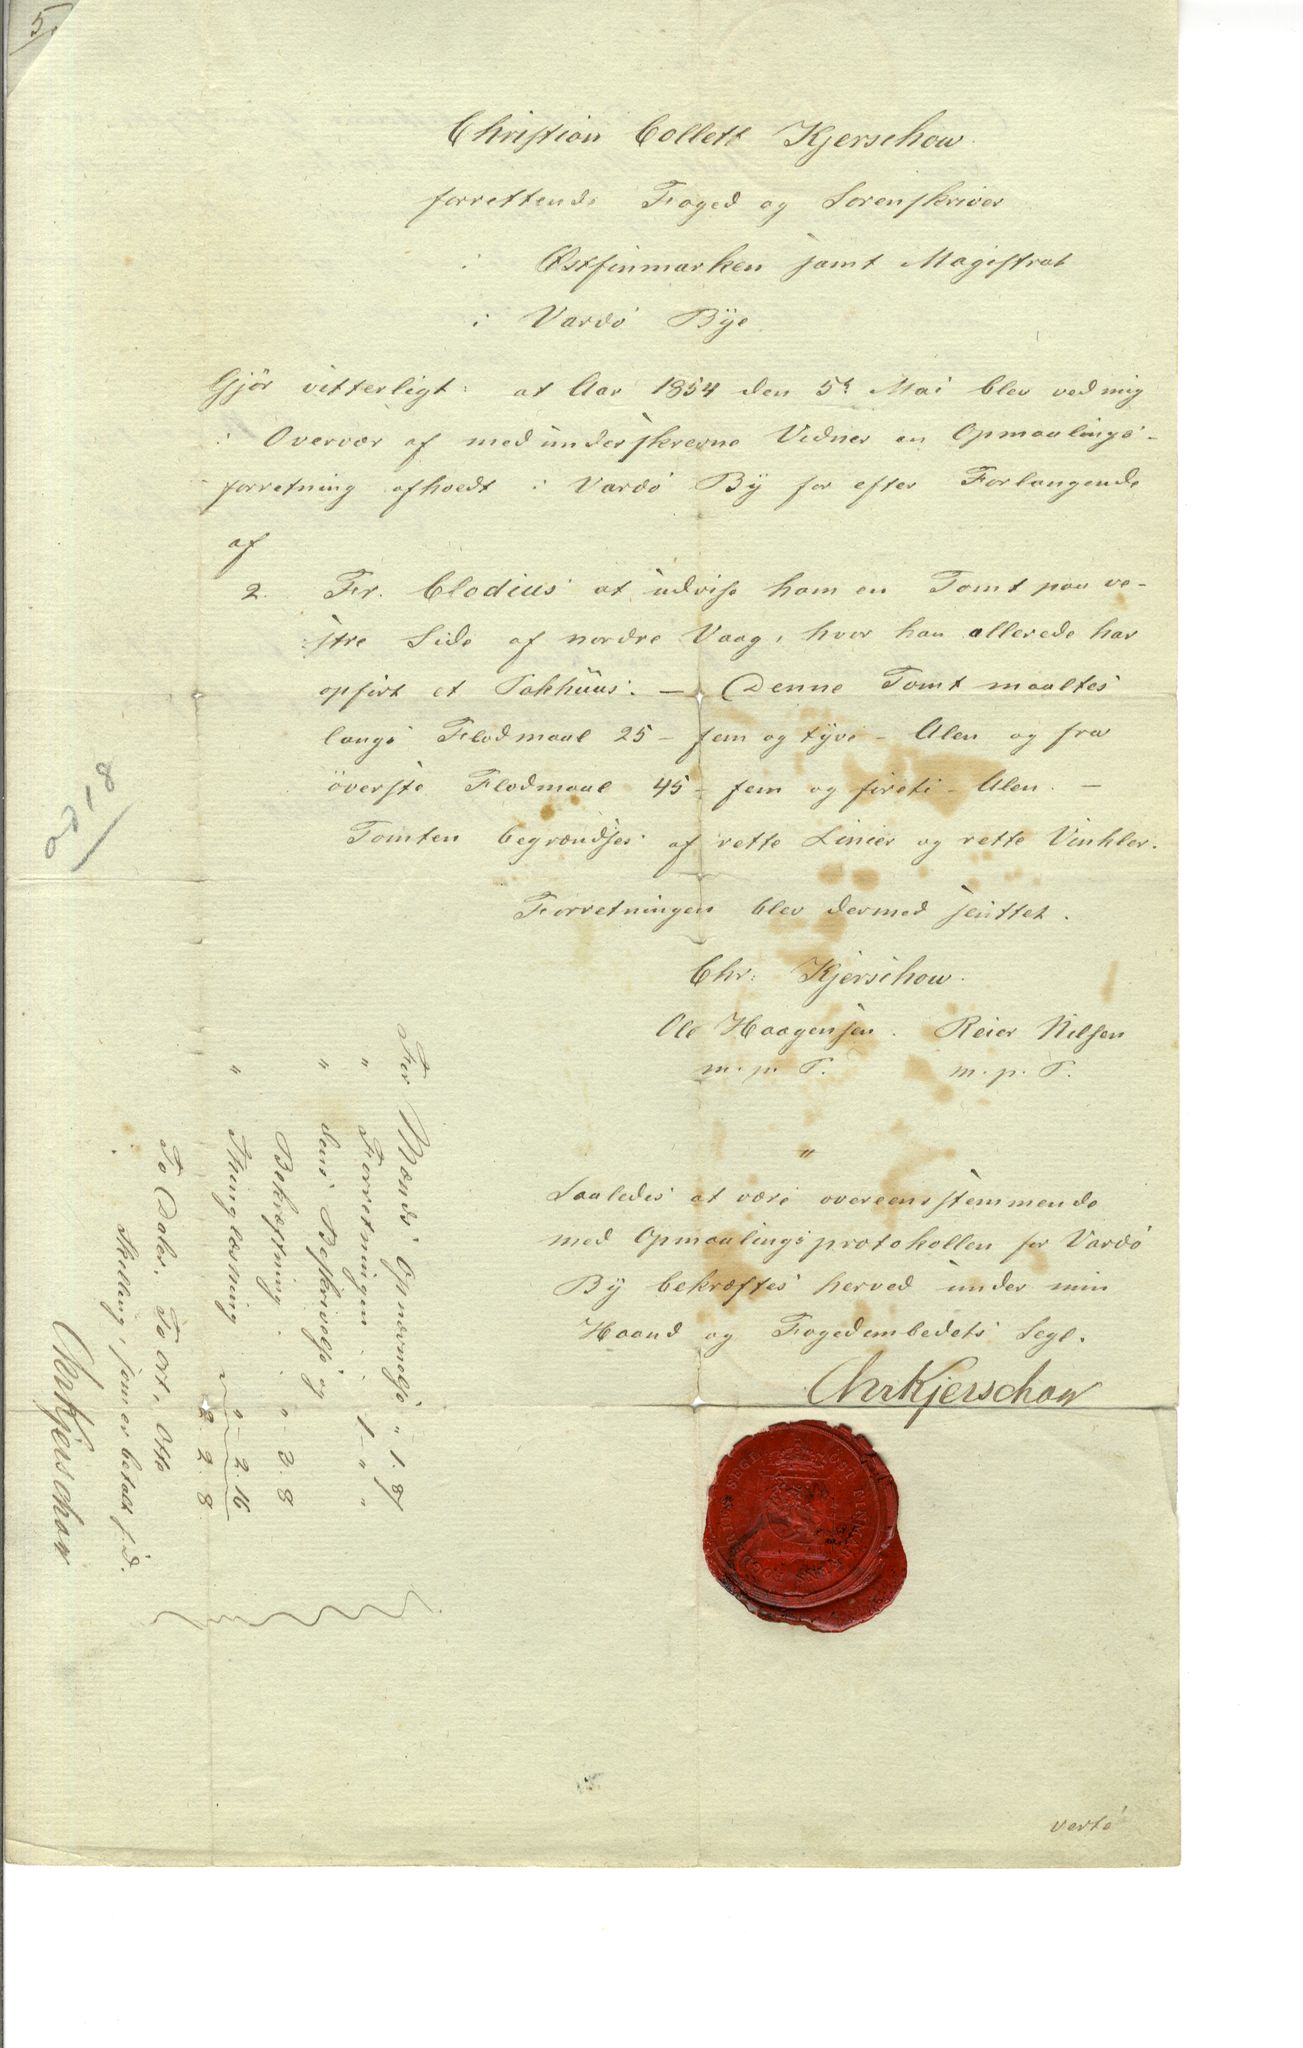 5.
Christian Collett Kjerschow
forrettende Foged og Sorenskriver
i Østfinmarken samt Magistrat
i Vardö Bÿe
Gjör vitterligt: at Aar 1854 den 5t Mai blev ved mig
i Overvær af medunderskrevne Vidner en Opmaalings-
forretning afholdt i Vardö Bÿ for efter Forlangende
af
2. Fr. Clodius at udvise ham en Tomt paa ve-
stre Side af nordre Vaag, hvor han allerede har
opfört et Pakhuus. — Denne Tomt maaltes
langs Flodmaal 25 - fem og tÿve - Alen og fra
överste Flodmaal 45 - fem og fireti - Alen. —
Tomten begrændses af rette Linier og rette Vinkler.
Forretningen blev dermed sluttet.
Chr. Kjerschow.
Ole Haagensen. Reier Nilsen
m. p. P. m. p. P.
"
Saaledes at være overeensstemmende
med Opmaalingsprotokollen for Vardö
Bÿ bekræftes herved under min
Haand og Fogedembedets Segl.
Chr Kjerschow
For Mænds Opnævnelse " 1. 8
" Forretningen . . 1 - " "
" dens Beskrivelse og
Bekræftning . . " 3. 8
" Thinglæsning " 2. 16
2. 2. 8
To Daler, To ort, Otte
Skilling, som er betalt s. D.
Chr Kjerschow
verte